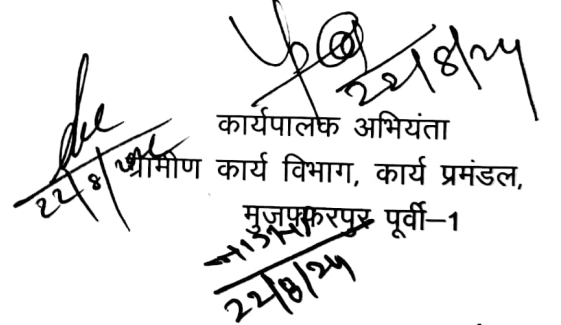 22/8/24
कार्यपालक अभियंता
22/8/24
ग्रामीण कार्य विभाग, कार्य प्रमंडल,
मुजफ्फरपुर पूर्वी–1
22/8/24